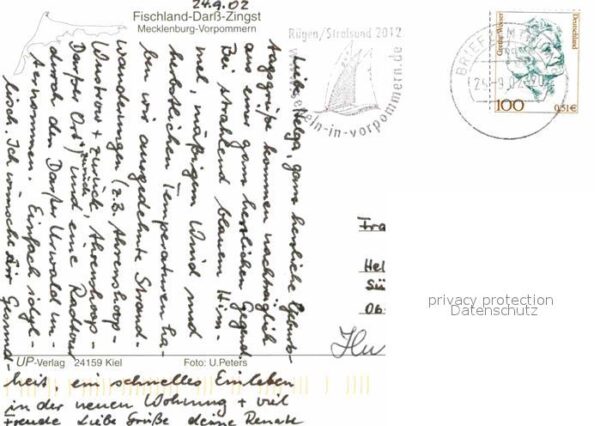 24.9.02
Fischland-Darß-Zingst
Mecklenburg-Vorpommern
Liebe Helga, ganz herzliche Geburts-
tagsgrüße kommen nachträglich
aus einer ganz herrlichen Gegend.
Bei strahlend blauem Him-
mel, mäßigem Wind und
herbstlichen Temperaturen ha-
ben wir ausgedehnte Strand-
wanderungen (z.B. Ahrenshoop-
Wustrow + zurück, Ahrenshoop-
Darßer Ort + zurück) und eine Radtour
durch den Darßer Urwald un-
ternommen. Einfach idyl-
lisch. Ich wünsche Dir Gesund-
heit, ein schnelles Einleben
in der neuen Wohnung + viel
Freude Liebe Grüße deine Renate
UP-Verlag 24159 Kiel Foto: U.Peters
Rügen/Stralsund 2012
segeln-in-vorpommern.de
BRIEFZENTRUM
24.-9.02
Grethe Weiser
Deutschland
100 0,51€
Fra
Hel
Sü
Ob
privacy protection
Datenschutz